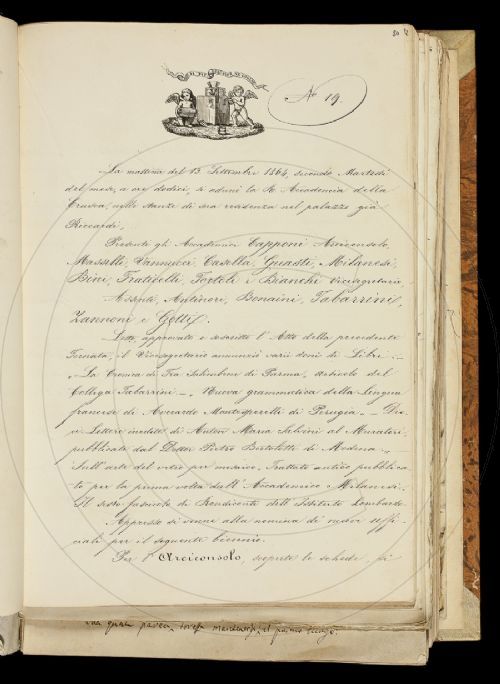 80
No 19.
La mattina del 13. Settembre 1864, secondo Martedì
del mese, a ore dodici, si adunò la R. Accademia della
Crusca, nelle stanze di sua residenza nel palazzo già
Riccardi.
Presenti gli Accademici Capponi Arciconsolo,
Masselli, Vannucci, Casella, Guasti, Milanesi,
Bini, Fraticelli, Tortoli e Bianchi Vicesegretario.
Assenti, Antinori, Bonaini, Tabarrini,
Zannoni e Gotti.
Letto approvato e sottoscritto l'Atto della precedente
Tornata, il Vicesegretario annunziò varii doni di Libri:
La Cronica di Fra Salimbene di Parma, articolo del
Collega Tabarrini. Nuova grammatica della lingua
francese di Averardo Montesperelli di Perugia. Die
ci Lettere inedite di Anton Maria Salvini al Muratori
pubblicate dal Dottor Pietro Bortolotti di Modena.
Sull'arte del vetro per musaico, Trattato antico pubblica
to per la prima volta dall'Accademico Milanesi.
Il sesto fascicolo de' Rendiconti dell'Istituto Lombardo.
Appresso si venne alla nomina di nuovi uffi
ciali per il seguente biennio.
Per l'Arciconsolo, segrete le schede, si